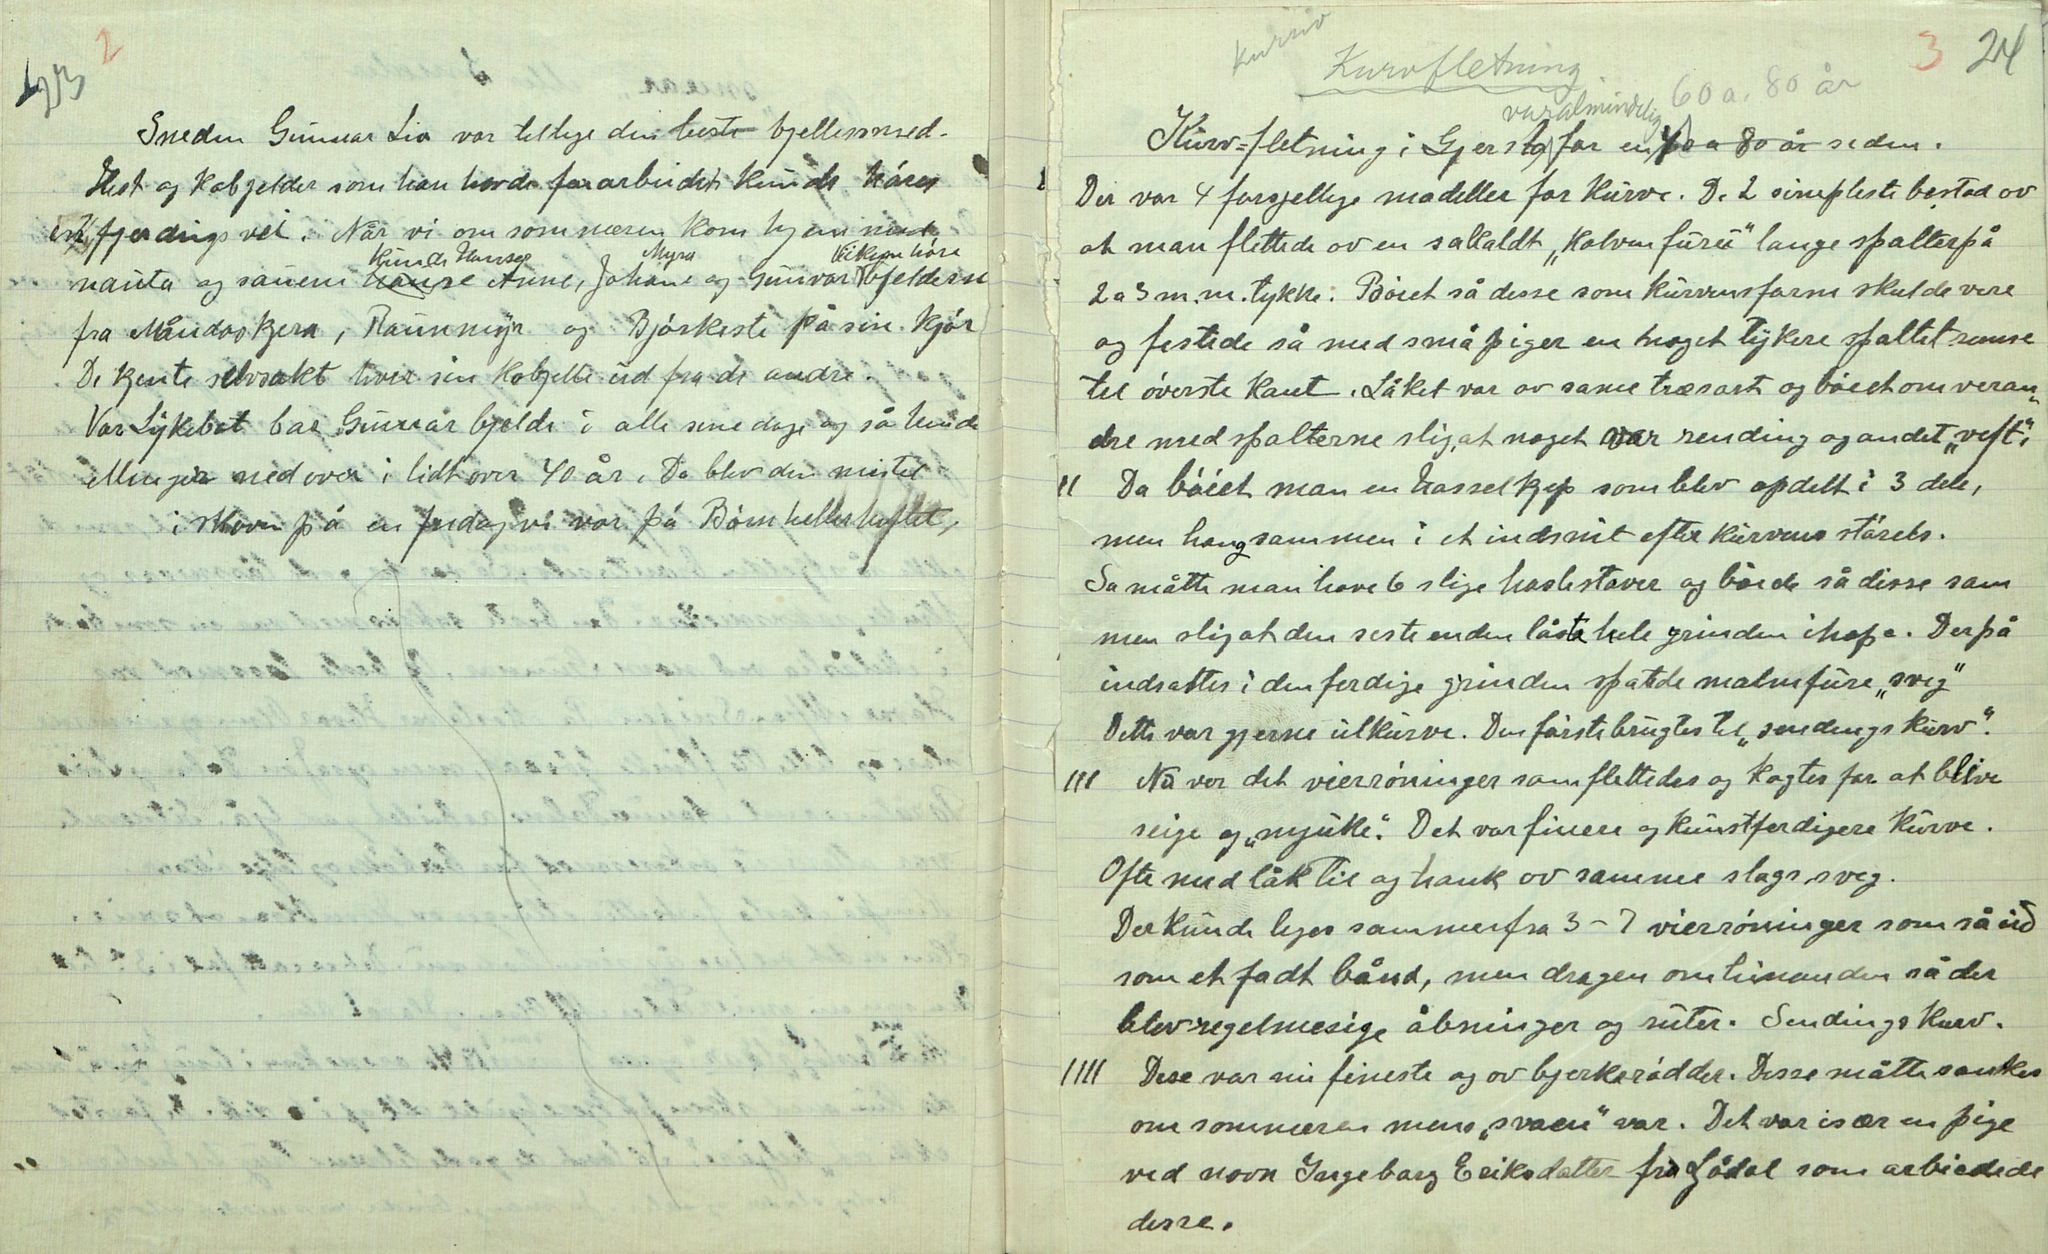 23 2
Smeden Gunnar Lia var tillige den beste bjellesmed.
Hest og kobjelder som han havde forarbeidet kunde høres
fjerdingsvei. Når vi om sommeren kom hjem med
Kunde Hanses Myra Eikjem høre
nauta og sauene Anne, Johane og Gunvor bjelderne
fra Måndoskjera, Raunmyr og Bjørkeste på sine kjør
De kjente selvsakt hver sin kobjelle ud fra de andre.
Vor Lykebot bar Gunnar bjelde i alle sine dage og så hendes
etlinger nedover i lidt over 40 år. Da blev den mistet
i skoven på en fredag vi var på Bømhellerheftet,
Kursiv
Kurvfletning.
3 24
var almindelig 60 a. 80 år
Kurv=fletning i Gjerstad for en 70 a 80 år siden.
I Der var 4 forsjellige modeller for kurve. De 2 simpleste bestod ov
at man flettede ov en sakaldt „kolvenfuru" lange spalter på
2 a 3 m.m. tykke. Bøiet så disse som kurvensform skulde vere
og festede så med små piger en noget tykere spaltet remse
til øverste kant. Låket var av same træsart og bøiet om veran„
dre med spalterne slig, at noget var rending og andet „veft".
II Da bøiet man en hasselkjep som blev opdelt i 3 dele,
men hang sammen i et indsnit efter kurvens størels.
Sa måtte man have 6 slige haslestaver og bøiede så disse sam
men slig at den siste enden låste hele grinden ihope. Derpå
indsattes i den ferdige grinden spatede malmfure „sveg"
Dette var gjerne ulkurve. Den første brugtes til „sendingskurv".
III Nå var det vierrøninger som flettedes og kogtes for at blive
seige og „mjuke". Det var finere og kunstferdigere kurve.
Ofte med låk til og hank ov samme slags sveg.
Der kunde leges sammen fra 3-7 vierrøninger som så ud
som et fadt bånd, men dragen om hinanden så der
blev regelmesige åbninger og ruter. Sendingskurv.
IIII Disse var nu fineste og ov bjerkerødder. Disse måtte sankes
om sommeren mens „svaeu" var. Det var især en pige
ved navn Ingeborg Eriksdatter fra Lødal som arbiedede
disse.